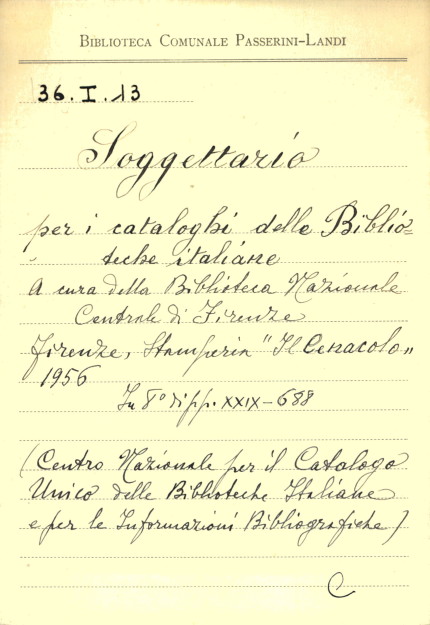 BIBLIOTECA COMUNALE PASSERINI-LANDI
36.I.13
Soggettario
per i cataloghi delle Biblio=
teche italiane
A cura della Biblioteca Nazionale
Centrale di Firenze
Firenze, Stamperia "Il Cenacolo"
1956
In 8° di pp. XXIX-688
(Centro Nazionale per il Catalogo
Unico delle Biblioteche Italiane
e per le Informazioni Bibliografiche)
C